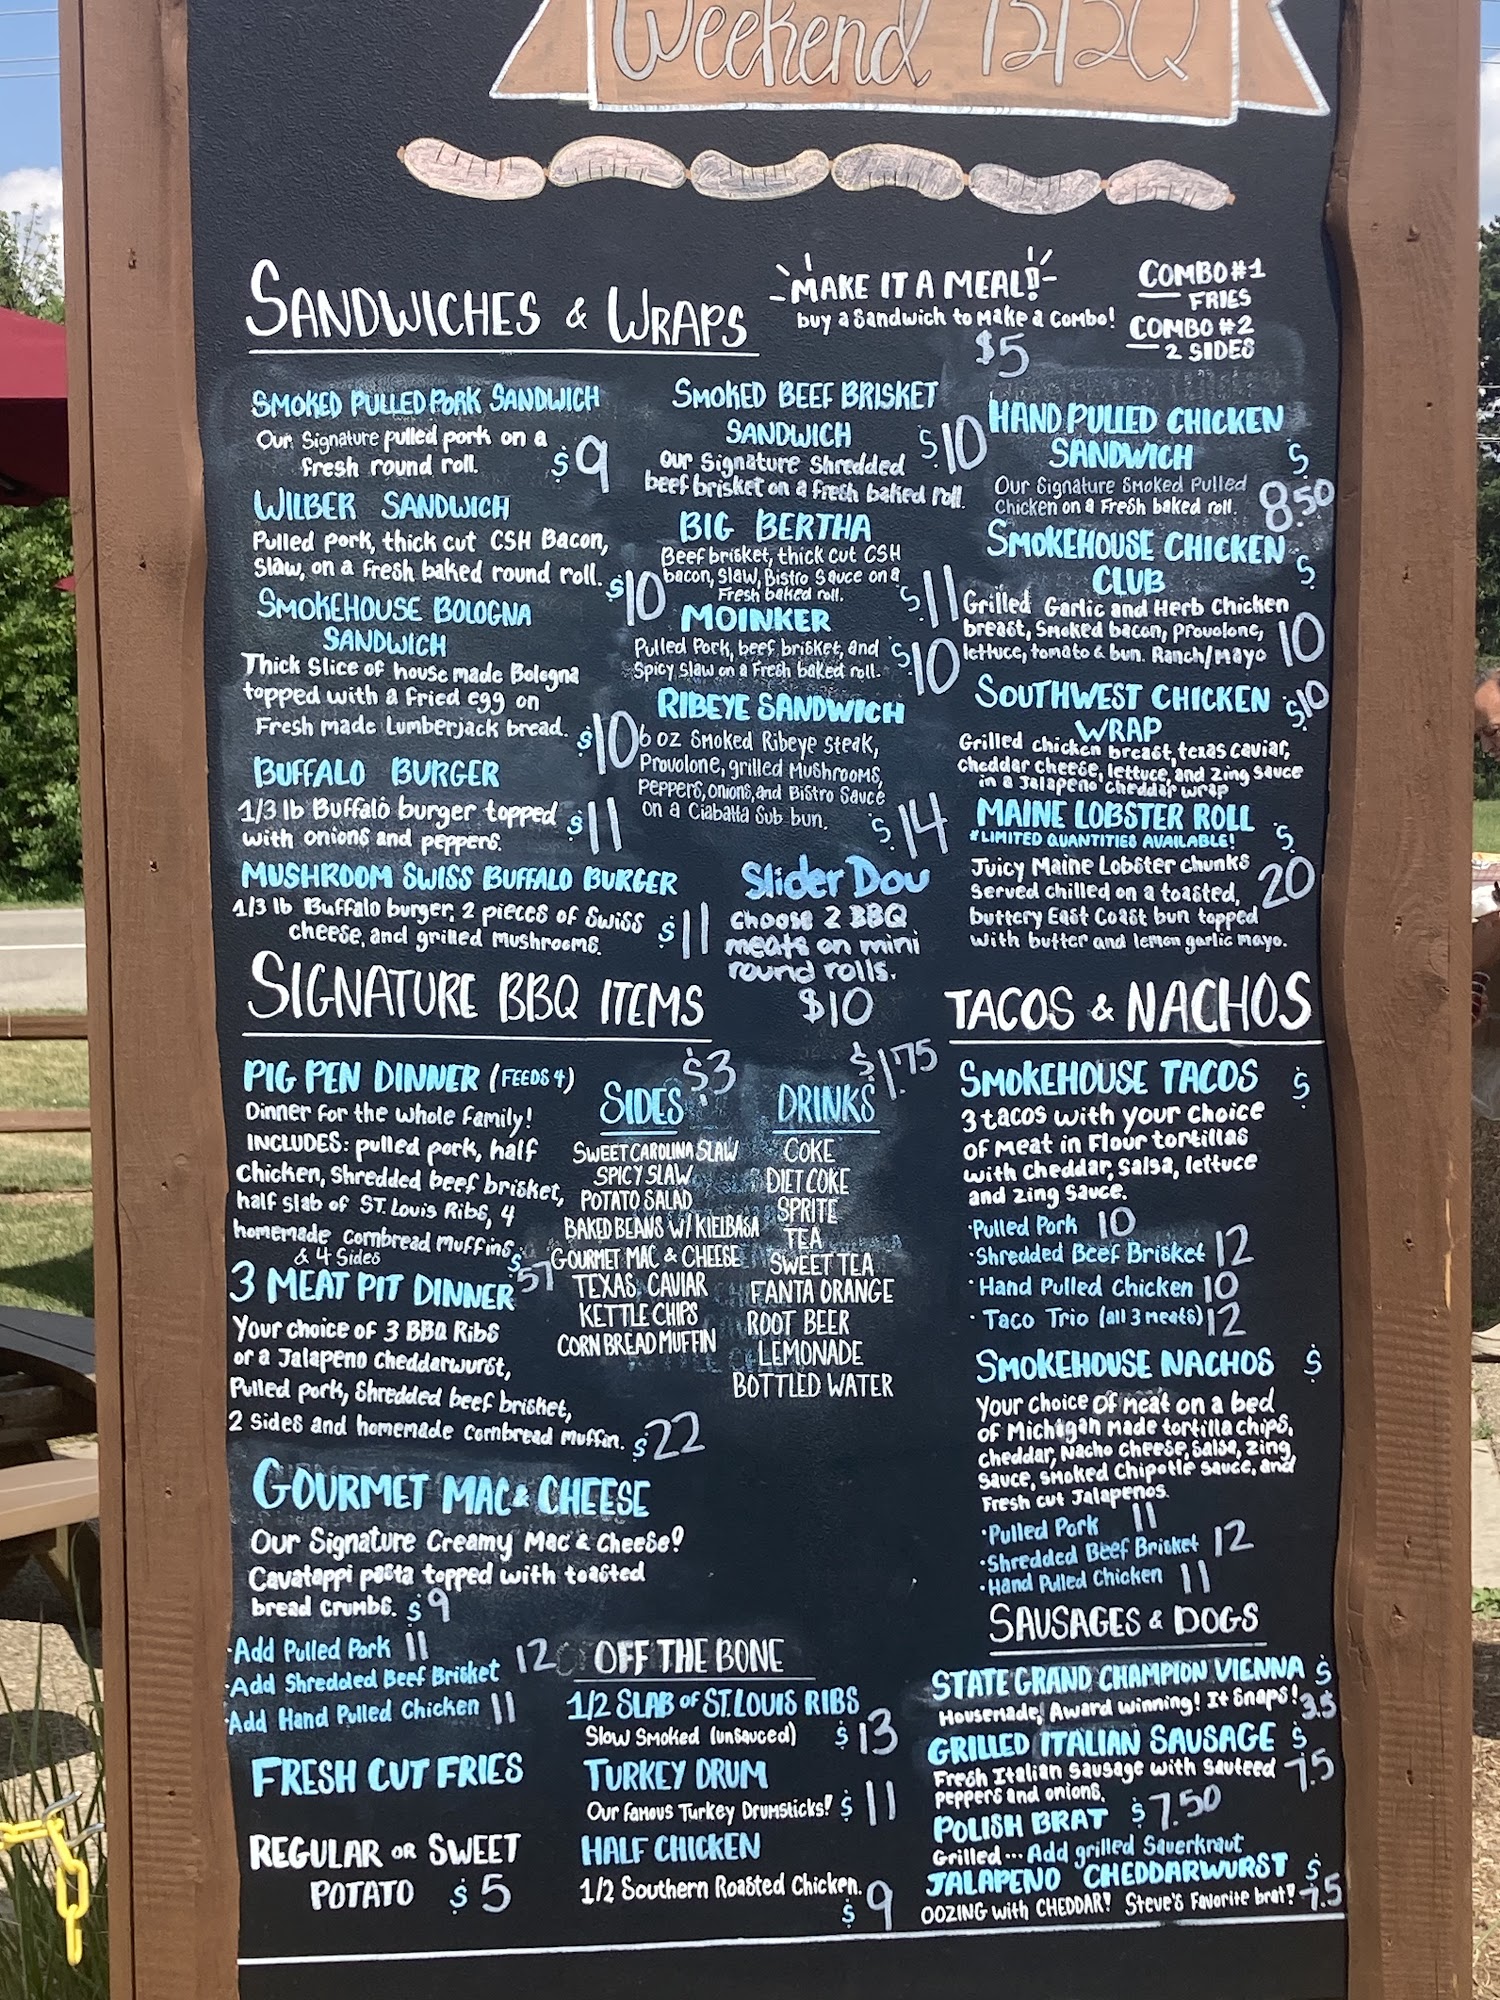 Weekend BBQ
SANDWICHES & WRAPS
MAKE IT A MEAL!
buy a Sandwich to make a combo!
$5
COMBO #1
FRIES
COMBO #2
2 SIDES
SMOKED PULLED PORK SANDWICH
Our Signature pulled pork on a
fresh round roll. $9
WILBER SANDWICH
Pulled pork, thick cut CSH Bacon,
Slaw, on a Fresh baked round roll. $10
SMOKEHOUSE BOLOGNA
SANDWICH
Thick Slice of house made Bologna
topped with a fried egg on
Fresh made Lumberjack bread. $10
BUFFALO BURGER
1/3 lb Buffalo burger topped
with onions and peppers. $11
MUSHROOM SWISS BUFFALO BURGER
1/3 lb Buffalo burger, 2 pieces of Swiss
cheese, and grilled Mushrooms. $11
SMOKED BEEF BRISKET
SANDWICH $10
our Signature Shredded
beef brisket on a fresh baked roll.
BIG BERTHA
Beef brisket, thick cut CSH
bacon, Slaw, Bistro Sauce on a
Fresh baked roll. $11
MOINKER
Pulled Pork, beef brisket, and
Spicy Slaw on a Fresh baked roll. $10
RIBEYE SANDWICH
6 oz Smoked Ribeye Steak,
Provolone, grilled Mushrooms,
Peppers, onions, and Bistro Sauce
on a Ciabatta Sub bun. $14
Slider Dou
choose 2 BBQ
meats on mini
round rolls.
$10
HAND PULLED CHICKEN
SANDWICH $8.50
Our Signature Smoked Pulled
Chicken on a Fresh baked roll.
SMOKEHOUSE CHICKEN
CLUB $10
Grilled Garlic and Herb Chicken
breast, Smoked bacon, Provolone,
lettuce, tomato & bun. Ranch/Mayo
SOUTHWEST CHICKEN $10
WRAP
Grilled chicken breast, texas caviar,
cheddar cheese, lettuce, and Zing Sauce
in a Jalapeno Cheddar wrap
MAINE LOBSTER ROLL $20
*LIMITED QUANTITIES AVAILABLE!
Juicy Maine Lobster chunks
Served chilled on a toasted,
buttery East Coast bun topped
with butter and lemon garlic mayo.
SIGNATURE BBQ ITEMS
PIG PEN DINNER (FEEDS 4)
Dinner for the whole family!
INCLUDES: pulled pork, half
Chicken, Shredded beef brisket,
half slab of ST. Louis Ribs, 4
homemade Cornbread Muffins
& 4 Sides $57
3 MEAT PIT DINNER
Your choice of 3 BBQ Ribs
or a Jalapeno Cheddarwurst,
Pulled pork, Shredded beef brisket,
2 Sides and homemade Cornbread Muffin. $22
GOURMET MAC & CHEESE
Our Signature Creamy Mac & Cheese!
Cavatappi pasta topped with toasted
bread crumbs. $9
·Add Pulled Pork 11
·Add Shredded Beef Brisket 12
·Add Hand Pulled Chicken 11
FRESH CUT FRIES
REGULAR OR SWEET
POTATO $5
SIDES $3
SWEET CAROLINA SLAW
SPICY SLAW
POTATO SALAD
BAKED BEANS W/ KIELBASA
GOURMET MAC & CHEESE
TEXAS CAVIAR
KETTLE CHIPS
CORN BREAD MUFFIN
DRINKS $1.75
COKE
DIET COKE
SPRITE
TEA
SWEET TEA
FANTA ORANGE
ROOT BEER
LEMONADE
BOTTLED WATER
OFF THE BONE
1/2 SLAB OF ST. LOUIS RIBS
Slow Smoked (unsauced) $13
TURKEY DRUM
Our famous Turkey Drumsticks! $11
HALF CHICKEN
1/2 Southern Roasted Chicken.
$9
TACOS & NACHOS
SMOKEHOUSE TACOS $
3 tacos with your choice
of meat in Flour tortillas
with cheddar, Salsa, lettuce
and zing sauce.
·Pulled Pork 10
·Shredded Beef Brisket 12
·Hand Pulled Chicken 10
·Taco Trio (all 3 meats) 12
SMOKEHOUSE NACHOS $
Your choice of meat on a bed
of Michigan made tortilla chips,
cheddar, Nacho cheese, Salsa, zing
sauce, smoked Chipotle sauce, and
Fresh cut Jalapenos.
·Pulled Pork 11
·Shredded Beef Brisket 12
·Hand Pulled Chicken 11
SAUSAGES & DOGS
STATE GRAND CHAMPION VIENNA $
Housemade, Award winning! It Snaps! 3.5
GRILLED ITALIAN SAUSAGE $
Fresh Italian Sausage with Sauteed 7.5
Peppers and onions.
POLISH BRAT $7.50
Grilled... Add grilled Sauerkraut
JALAPENO CHEDDARWURST $
OOZING with CHEDDAR! Steve's Favorite brat! 7.5